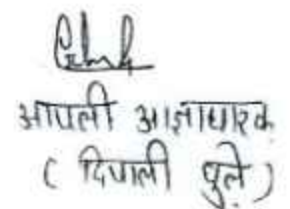 आपली आज्ञाधारक
( दिपाली घुले )